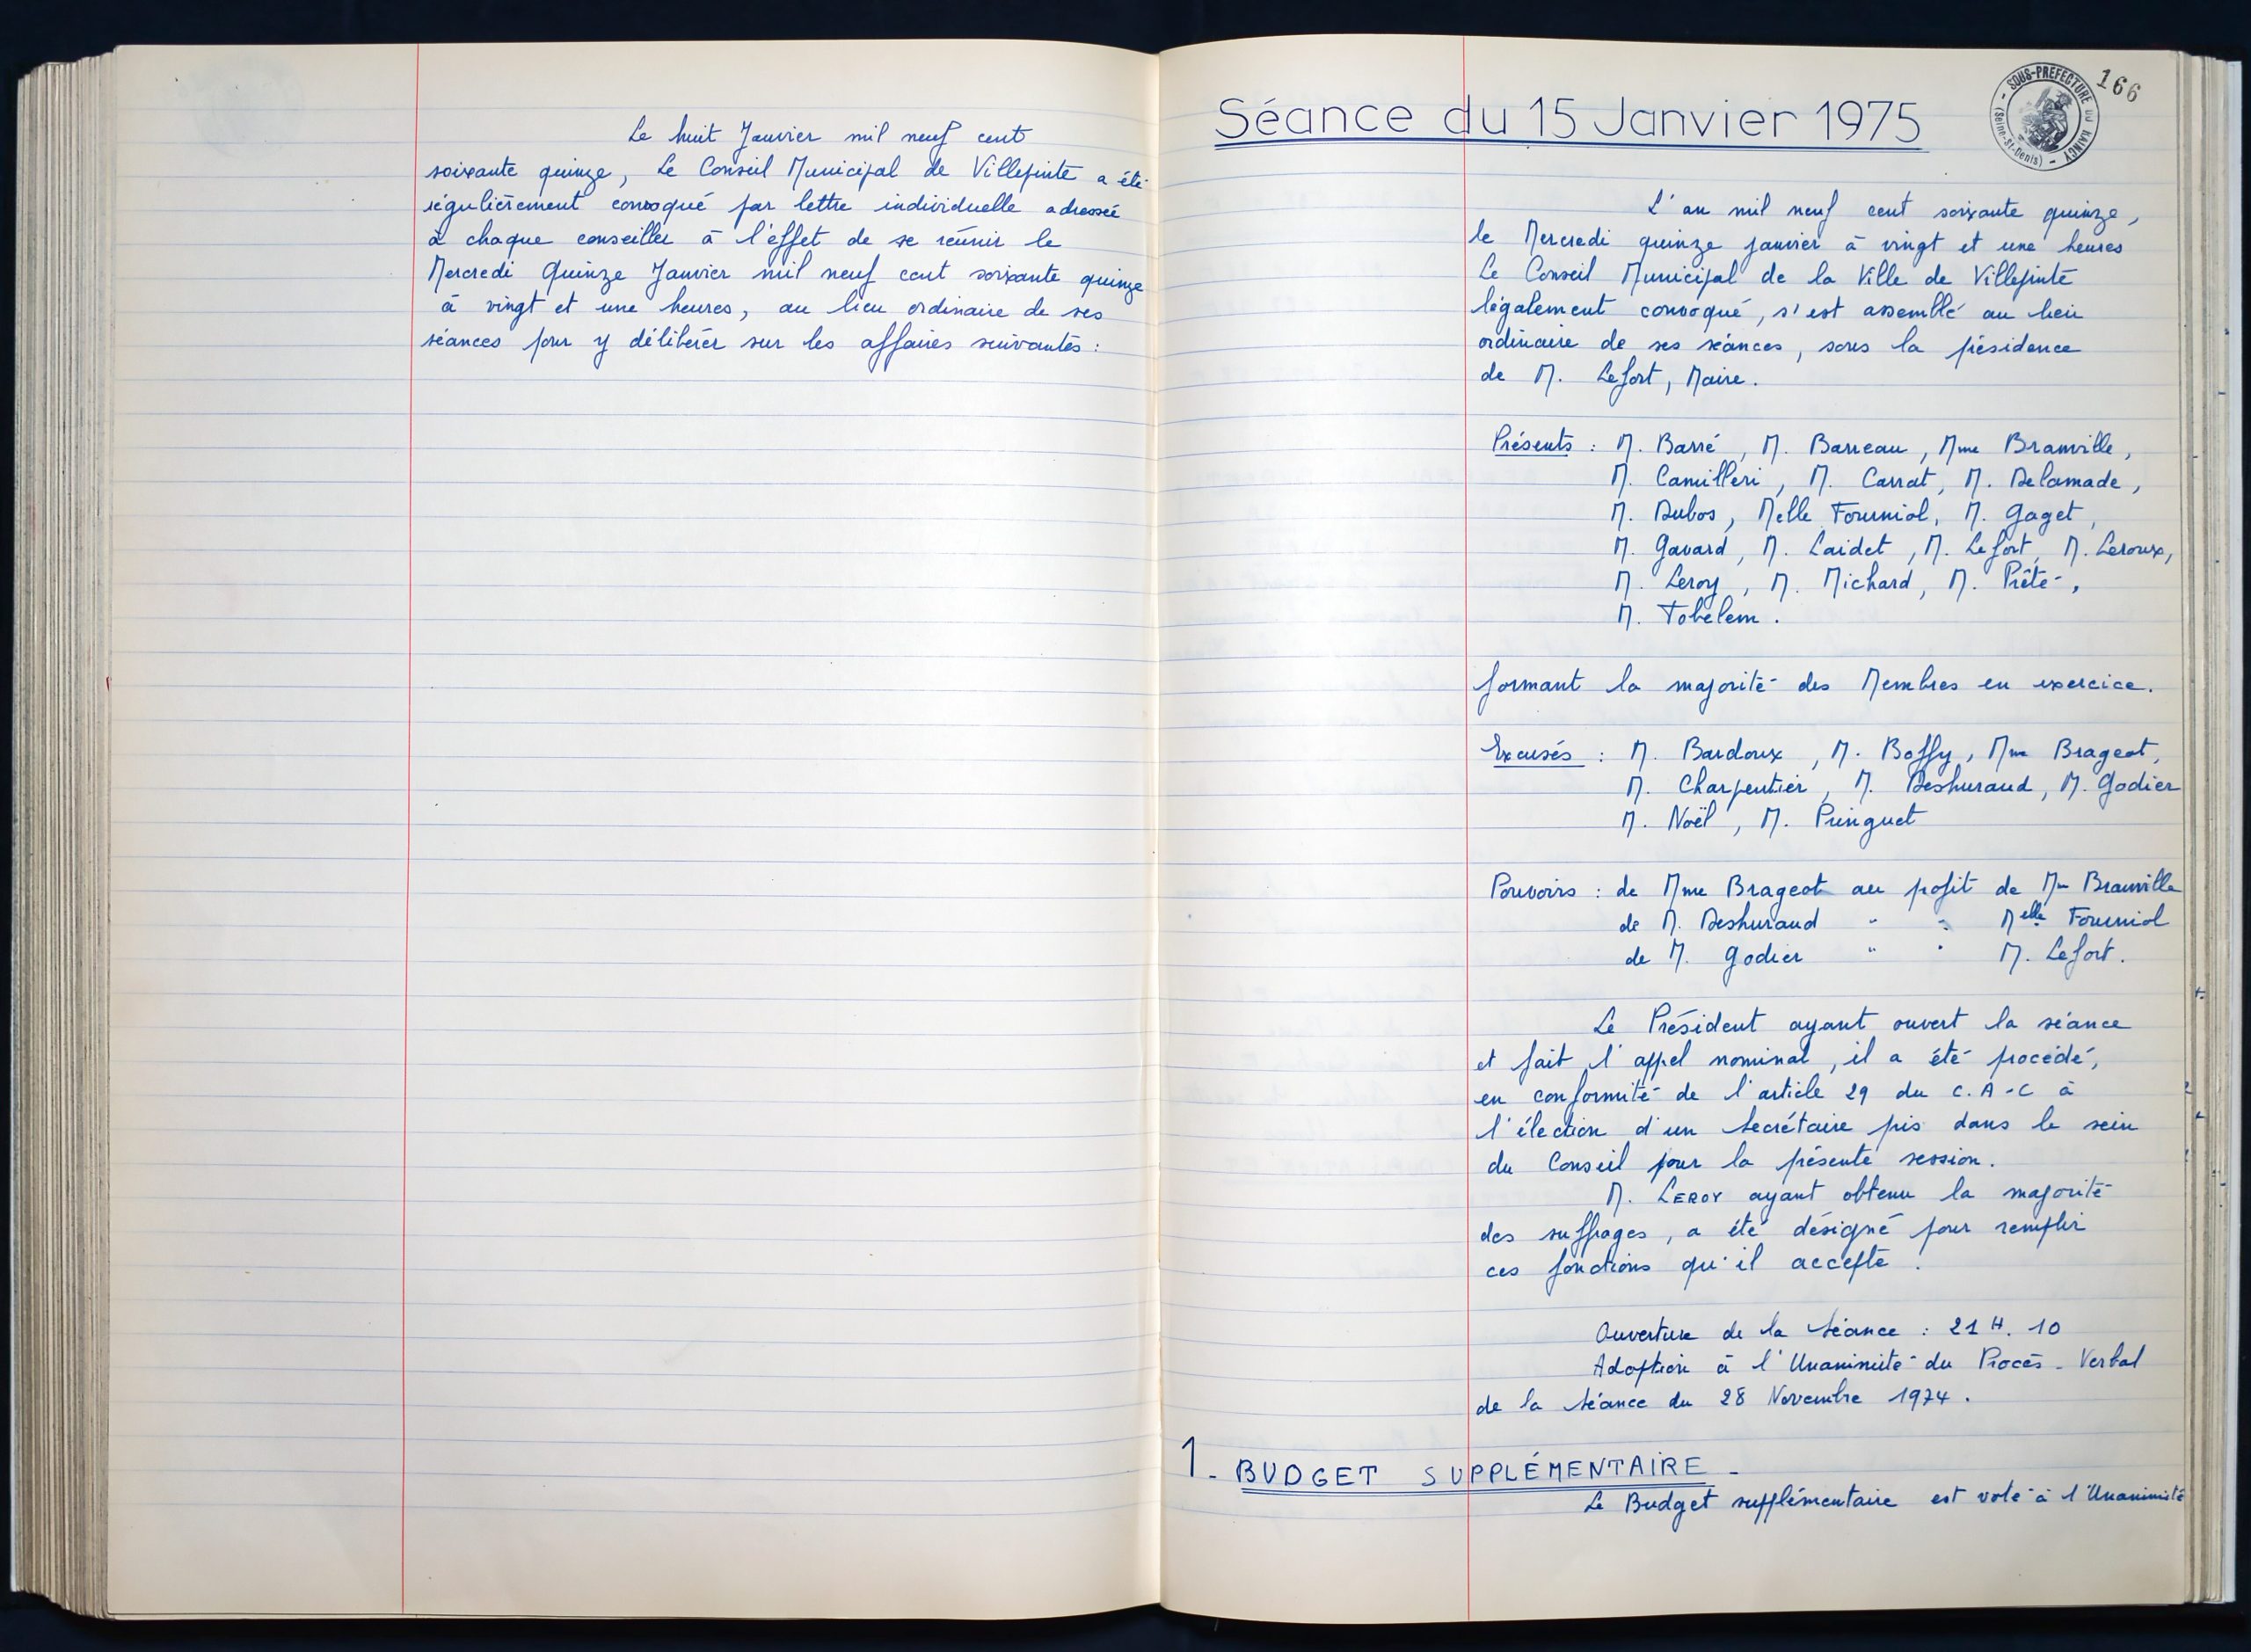 Le huit Janvier mil neuf cent
soixante quinze, Le Conseil Municipal de Villepinte a été
régulièrement convoqué par lettre individuelle adressée
à chaque conseiller à l'effet de se réunir le
Mercredi Quinze Janvier mil neuf cent soixante quinze
à vingt et une heures, au lieu ordinaire de ses
séances pour y délibérer sur les affaires suivantes :
Séance du 15 Janvier 1975
SOUS-PREFECTURE DU RAINCY
(Seine-St-Denis)
166
L'an mil neuf cent soixante quinze,
le Mercredi quinze janvier à vingt et une heures
Le Conseil Municipal de la Ville de Villepinte
légalement convoqué, s'est assemblé au lieu
ordinaire de ses séances, sous la présidence
de M. Lefort, Maire.
Présents : M. Barré, M. Barreau, Mme Branville,
M. Camilleri, M. Carrat, M. Delamade,
M. Dubos, Melle Fourniol, M. Gaget,
M. Gavard, M. Laidet, M. Lefort, M. Leroux,
M. Leroy, M. Michard, M. Prêté,
M. Tobelem.
formant la majorité des Membres en exercice.
Excusés : M. Bardoux, M. Boffy, Mme Brageot,
M. Charpentier, M. Deshuraud, M. Godier
M. Noël, M. Puinguet
Pouvoirs : de Mme Brageot au profit de Mme Branville
de M. Deshuraud " " Melle Fourniol
de M. Godier " " M. Lefort.
Le Président ayant ouvert la séance
et fait l'appel nominal, il a été procédé,
en conformité de l'article 29 du C.A-C à
l'élection d'un Secrétaire pris dans le sein
du Conseil pour la présente session.
M. LEROY ayant obtenu la majorité
des suffrages, a été désigné pour remplir
ces fonctions qu'il accepte.
Ouverture de la Séance : 21 H. 10
Adoption à l'Unanimité du Procès-Verbal
de la Séance du 28 Novembre 1974.
1- BUDGET SUPPLÉMENTAIRE -
Le Budget supplémentaire est voté à l'Unanimité